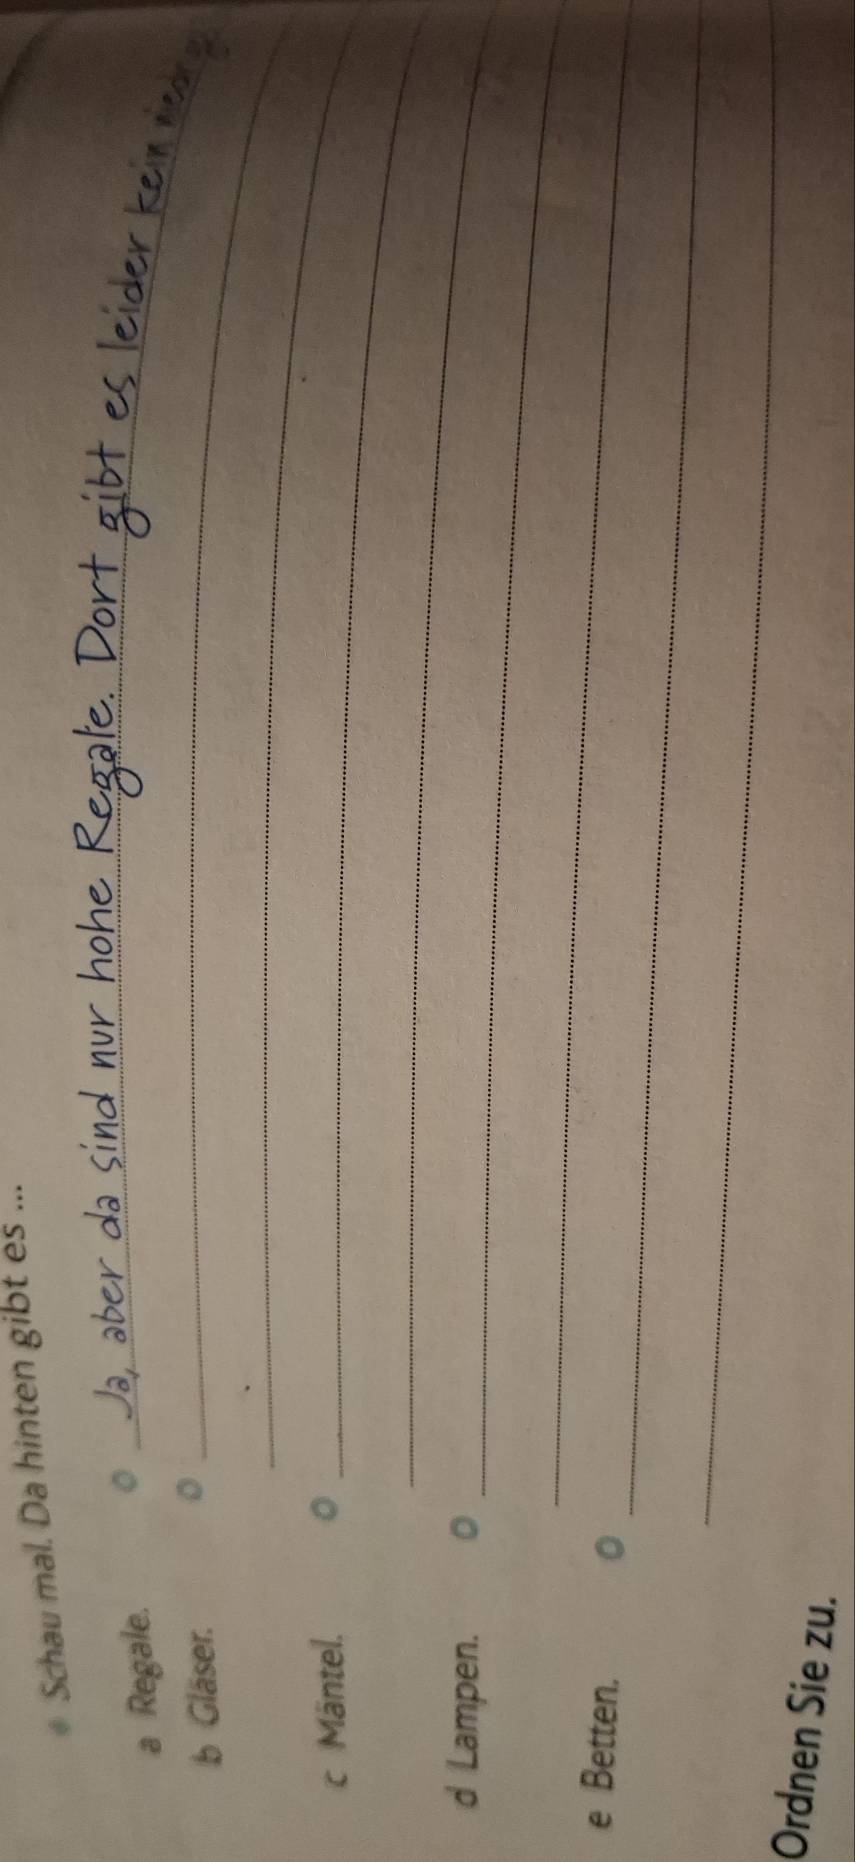 Schau mal. Da hinten gibt es ...
a Regale. o Ja, aber da sind nur hohe Regale. Dort gibt es leider kein
b Gläser. o
c Mäntel. o
d Lampen. o
e Betten. o
Ordnen Sie zu.